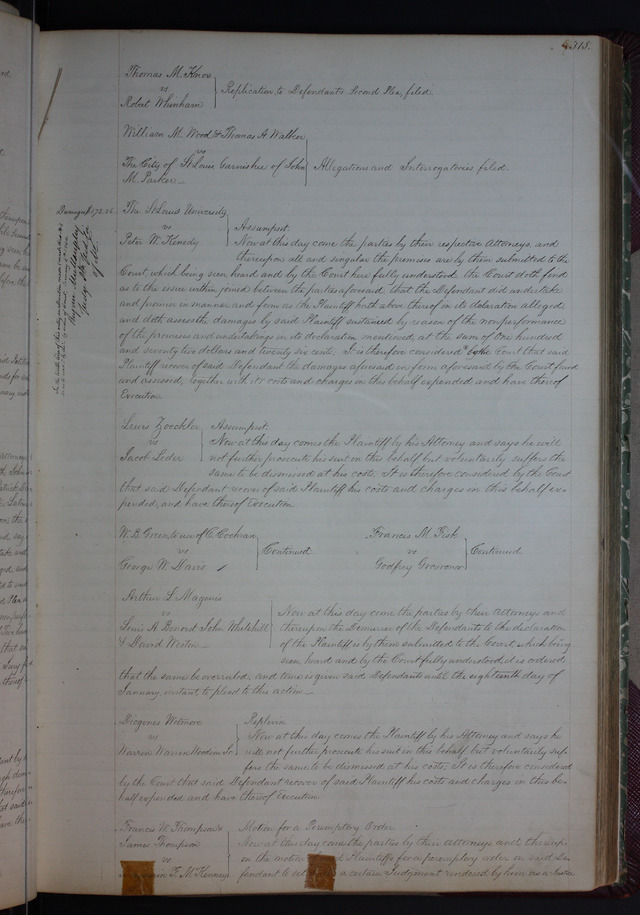 315.
Thomas M. Know
vs
Robert Whinham
Replication to Defendants Second Plea, filed
William M. Wood & Thomas A Walker
vs
The City of St Louis Garnishee of John
M. Parker
Allegations and Interrogatories filed.
Damages $172.26
The St Louis University
vs
Peter W. Kenedy
Assumpsit.
Now at this day come the parties by their respective Attorneys, and
thereupon all and singular the premises are by them submitted to the
Court, which being seen heard and by the Court here fully understood the Court doth find
as to the issue within joined between the parties aforesaid, that the Defendant did undertake
and promise in manner and form as the Plaintiff hath above thereof in its declaration alleged,
and doth assess the damages by said Plaintiff sustained by reason of the nonperformance
of the promises and undertakings in its declaration mentioned, at the sum of one hundred
and seventy two dollars and twenty six cents. It is therefore considered by the Court that said
Plaintiff recover of said Defendant the damages aforesaid in form aforesaid by the Court found
and assessed, together with its costs and charges in this behalf expended and have thereof
Execution.
Lewis Zoeckler
vs
Jacob Leder
Assumpsit.
Now at this day comes the Plaintiff by his Attorney and says he will
not further prosecute his suit in this behalf but voluntarily suffers the
same to be dismissed at his costs. It is therefore considered by the Court
that said Defendant recover of said Plaintiff his costs and charges in this behalf ex-
pended, and have thereof Execution.
W. B. Green to use of C. Cochran
vs
George W. Davis
Continued
Francis M. Fisk
vs
Godfrey Grosvenor
Continued
Arthur L. Magenis
vs
Louis A. Benord John Whitehill
& David Weston
Now at this day come the parties by their Attorneys and
thereupon the Demurrer of the Defendant to the declaration
of the Plaintiff is by them submitted to the Court, which being
seen, heard and by the Court fully understood it is ordered
that the same be overruled, and time is given said Defendants until the eighteenth day of
January instant to plead to this action
Diogenes Wetmore
vs
Warren Warren Woodson Sr.
Replevin
Now at this day comes the Plaintiff by his Attorney and says he
will not further prosecute his suit in this behalf but voluntarily suf-
fers the same to be dismissed at his costs. It is therefore considered
by the Court that said Defendant recover of said Plaintiff his costs and charges in this be-
half expended and have thereof Execution.
Francis W. Thompson &
James Thompson
vs
F. McKenney
Motion for a Peremptory Order
Now at this day come the parties by their Attorneys and thereup-
on the motion Plaintiffs for a peremptory order on said De-
fendant to a certain Judgment rendered by him as a Justice